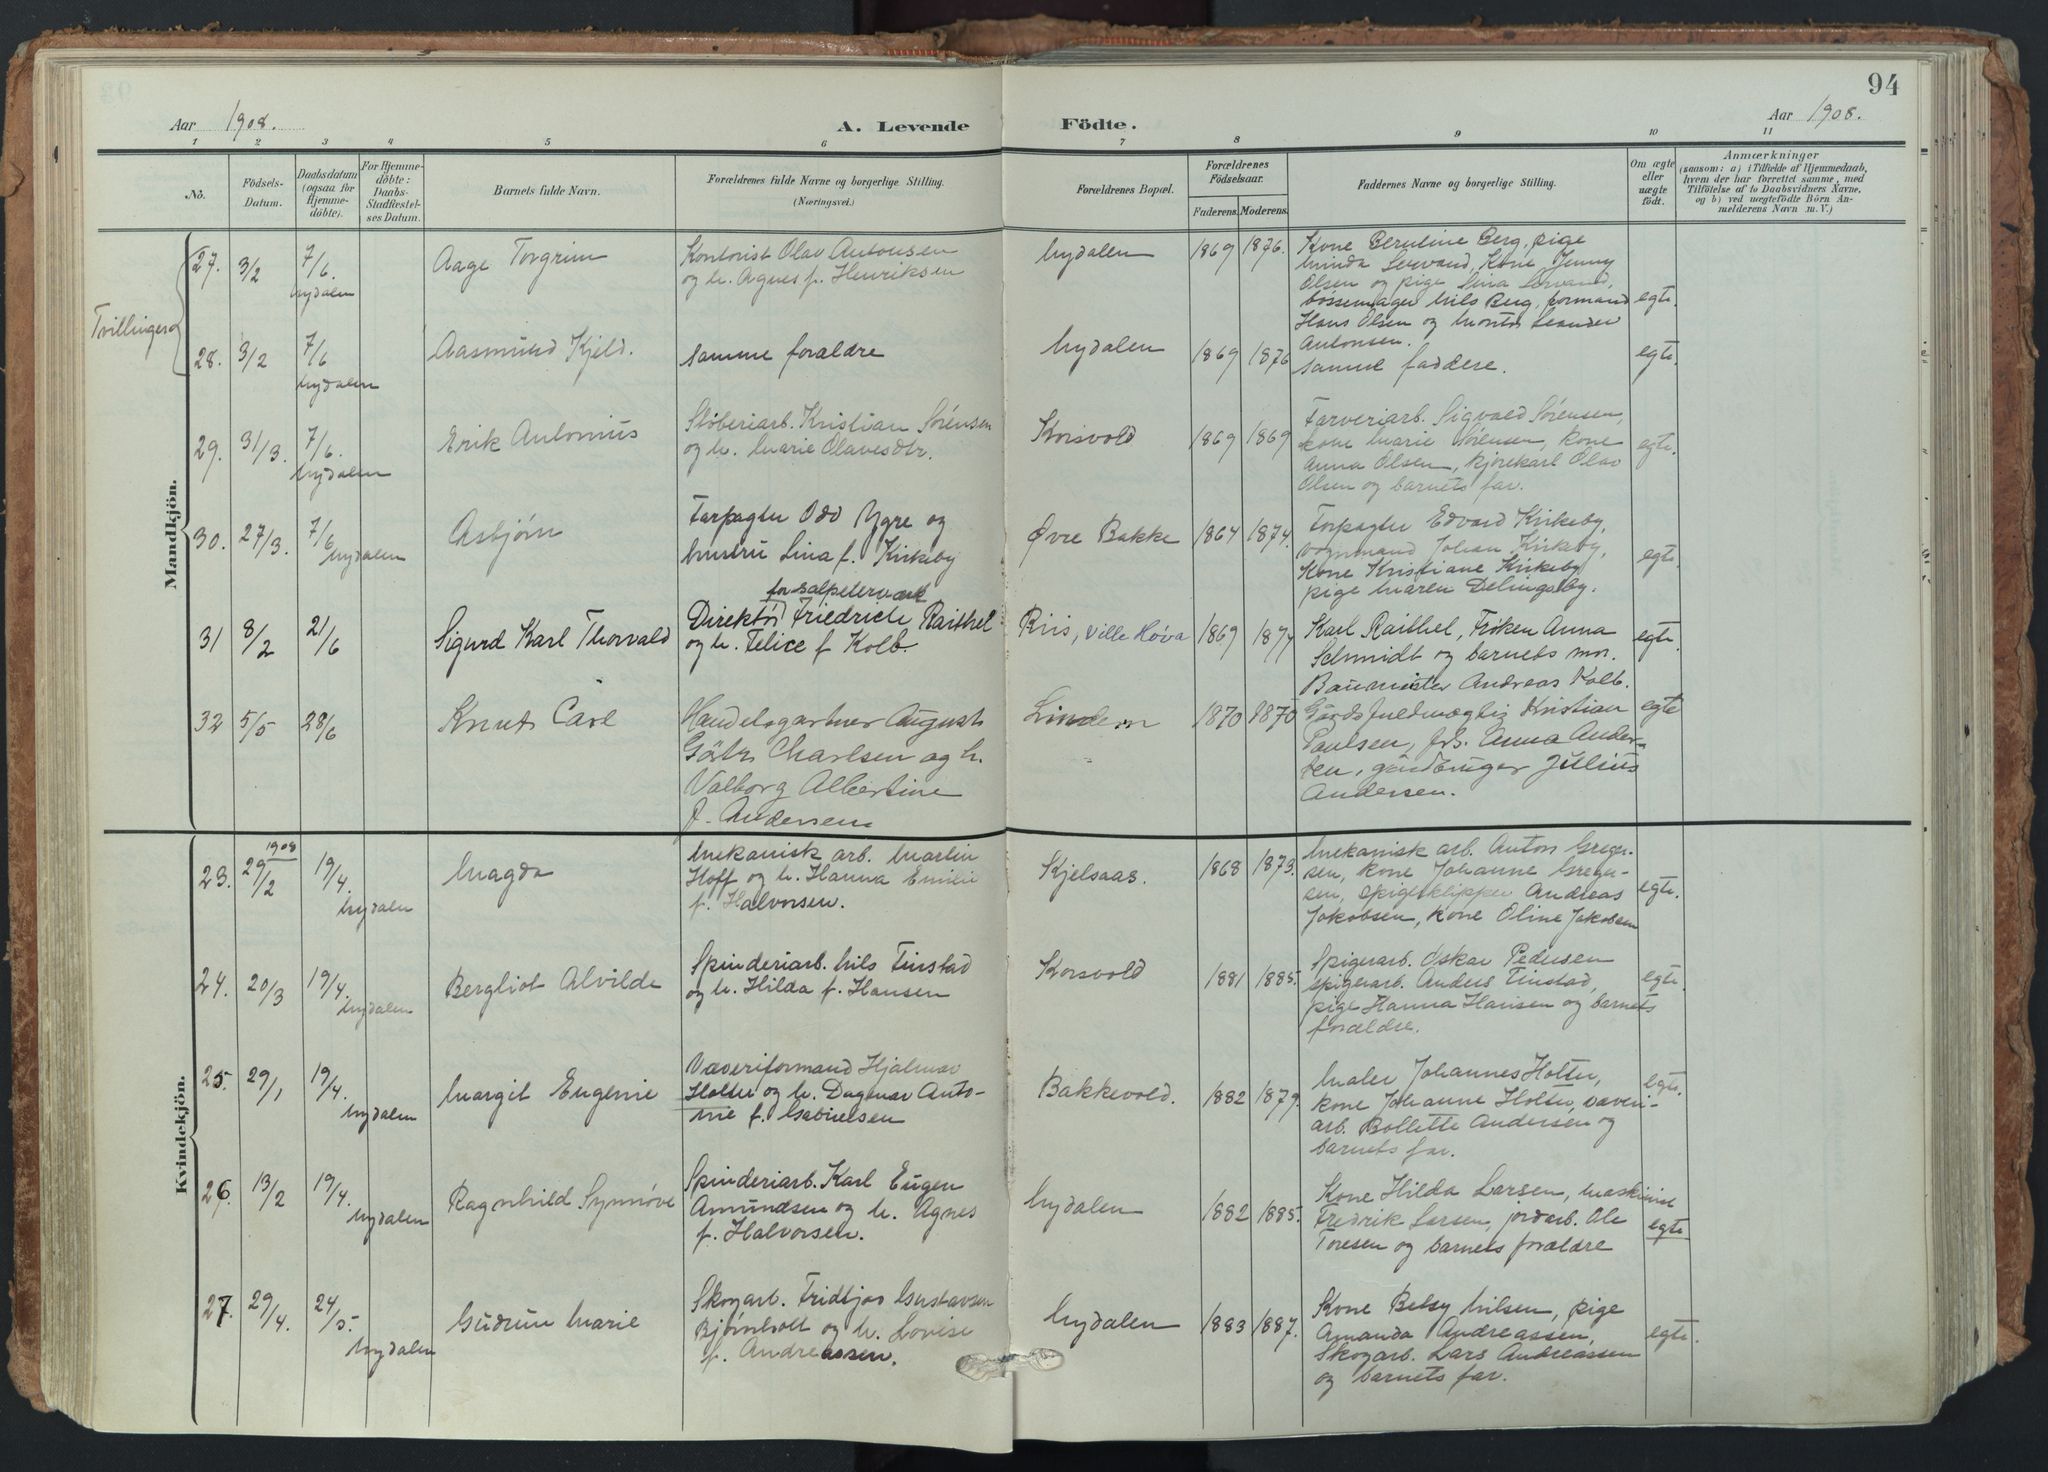 94
Aar 1908.
A. Levende Födte.
Aar 1908.
1 2 3 4 5 6 7 8 9 10 11
No.
Födsels-
Datum.
Daabsdatum
(ogsaa for
Hjemme-
döbte).
For Hjemme-
döbte:
Daabs-
Stadfæstel-
ses Datum.
Barnets fulde Navn.
Forældrenes fulde Navne og borgerlige Stilling.
(Næringsvei.)
Forældrenes Bopæl.
Forældrenes
Födselsaar.
Faderens. Moderens.
Faddernes Navne og borgerlige Stilling.
Om ægte
eller
uægte
födt.
Anmærkninger
(saasom: a) i Tilfælde af Hjemmedaab,
hvem der har forrettet samme, med
Tilföielse af to Daabsvidners Navne,
og b) ved uægtefödte Börn An-
melderens Navn m. V.)
Mandkjön.
Tvillinger
27. 3/2 7/6. Nydalen
Aage Torgrim
Kontorist Olav Antonsen
og h. Agnes f. Henriksen
Nydalen
1869 1876.
Kone Beruline Berg, pige
Minda Servand, Kone Jenny
Olsen og pige Lina Servand,
bössemager Nils Berg, formand
Hans Olsen og Montør Leander
Antonsen.
egte.
28. 3/2 7/6 Nydalen
Aasmund Kjeld.
samme forældre
Nydalen
1869 1876
samme faddere.
egte.
29. 31/3. 7/6. Nydalen
Erik Antonius
Støberiarb. Kristian Sörensen
og h. Marie Olavesdtr.
Korsvold
1869 1869
Farveriarb. Sigvald Sørensen,
kone Marie Sørensen, kone
Anna Olsen, kjørekarl Olav
Olsen og barnets far.
egte.
30. 27/3. 7/6 Nydalen
Asbjørn
Forpagter Odd Ygre og
hustru Lina f. Kirkeby
Øvre Bakke
1864 1874.
Forpagter Edvard Kirkeby,
vognmand Johan Kirkeby,
Kone Kristiane Kirkeby
pige Maren Delingsby.
egte.
31 8/2 21/6
Sigurd Karl Thorvald
for salpeterværk
Direktör Friedrich Raithel
og h. Felice f Kolb.
Ris, Ville Høva
1869 1877
Karl Raithel, Frøken Anna
Schmidt og barnets mor.
Baumeister Andreas Kolb.
egte.
32 5/5 28/6
Knut Carl
Handelsgartner August
Götz Charlsen og h.
Valborg Albertine
f. Andersen
Lindern
1870 1870
Gårdsfuldmægtig Kristian
Paulsen, frk. Anna Ander-
sen, gårdbruger Julius
Andersen.
egte
Kvindekjön.
23. 1908 29/2 19/4. Nydalen
Magda
Mekanisk arb. Martin
Hoff og h. Hanna Emilie
f. Halvorsen.
Kjelsaas.
1868 1873.
Mekanisk arb. Anton Greger-
sen, kone Johanne Greger-
sen, spigerklipper Andreas
Jakobsen, kone Oline Jakobsen
egte.
24. 20/3 19/4. Nydalen
Bergliot Alvilde
Spinderiarb. Nils Finstad
og h. Hilda f. Hansen
Korsvold
1881 1885.
Spigerarb. Oskar Pedersen
spigerarb. Anders Finstad,
pige Hanna Hansen og barnets
forældre.
egte.
25. 29/1 19/4. Nydalen
Margit Eugenie
Væveriformand Hjalmar
Holter og h. Dagmar Anto-
nie f. Gabrielsen
Bakkevold.
1882 1879.
Maler Johannes Holter,
kone Johanne Holter, væveri-
arb. Bollette Andersen og
barnets far.
egte.
26. 13/2 19/4. Nydalen
Ragnhild Synnøve
Spinderiarb. Karl Eugen
Amundsen og h. Agnes
f. Halvorsen.
Nydalen
1882 1885.
Kone Hilda Larsen, Maskinist
Fredrik Larsen, jordarb. Ole
Toresen og barnets forældre
egte
27. 29/4. 24/5. Nydalen
Gudrun Marie
Skogarb. Fridtjov Gustavsen
Bjørnholt og h. Lovise
f. Andreassen.
Nydalen
1883 1887.
Kone Betsy Nilsen, pige
Amanda Andreassen,
Skogarb. Lars Andreassen
og barnets far.
egte.